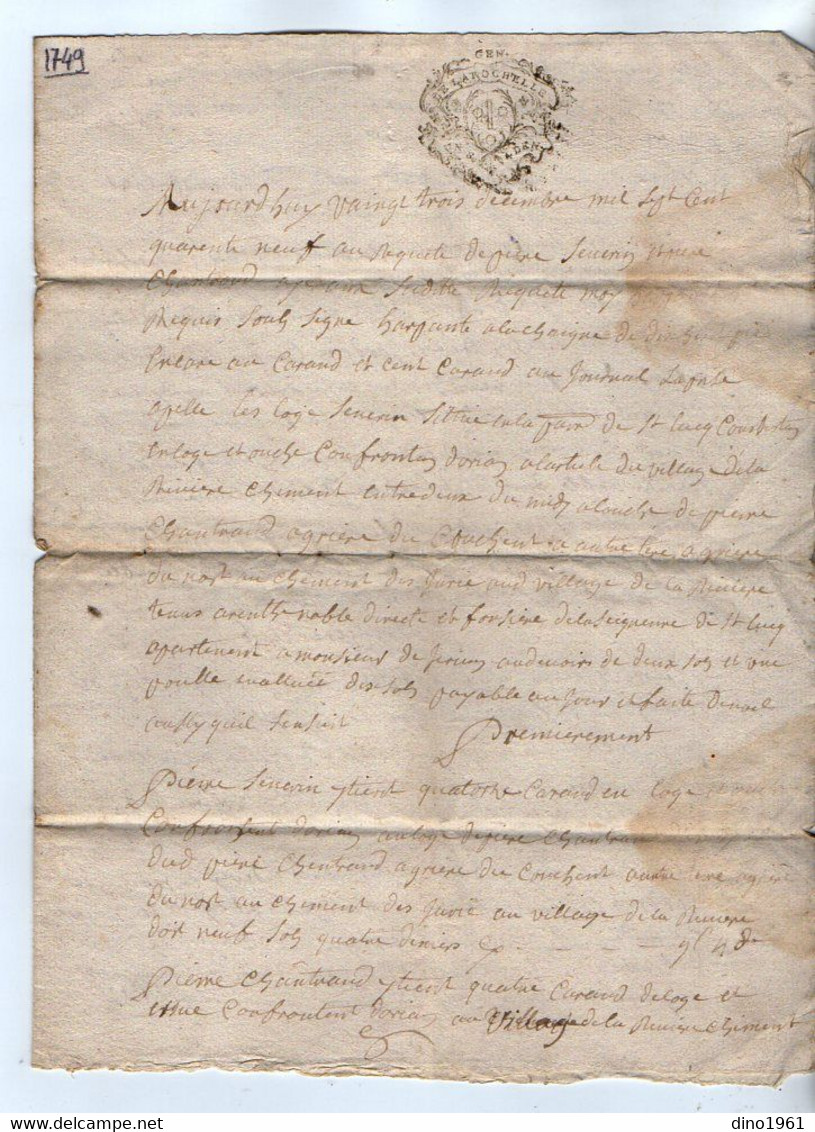 1749
GEN.
DE LAROCHELLE
Aujourdhuy vaingt trois decembre mil sept cent
quarente neuf au Requeste de piere Severin
Chantrand Requete moy
Requis Soub Signe harpante a la chaigne de dix huit pié
Encore au Carand et cent Carand au Journal la prise
apelle les loge Severin Sittue en la de St Lucq Consistan
en loge et ouche Confrontan dorian du village de la
Riviere Chement entredeux du midy a louche de pierre
Chantrand agriere du Couchent a autre tere agriere
du nort au chement des Jurie aud village de la Riviere
tenus a renthe noble directe et fonsiere de la Seigneurie de St Lucq
apartenent a monsieur de au devoirs de deux sols et une
poulle evalluée dix sols payable au Jour et faite de noel
ausy quil sensuit
Premierement
Pierre Severin tient quatorze Carand en loge et ouche
Confrontent dorian au loge de piere Chantrand
dud piere Chantrand agriere du Couchent a autre tere agriere
du nort au chement des Jurie au village de la Riviere
doit neuf sols quatre deniers cy - - - - - 9s 4 d
Pierre Chantrand tient quatre Carand de loge et
Confrontent dorian au village de la Riviere chement
delcampe.net
dino1961